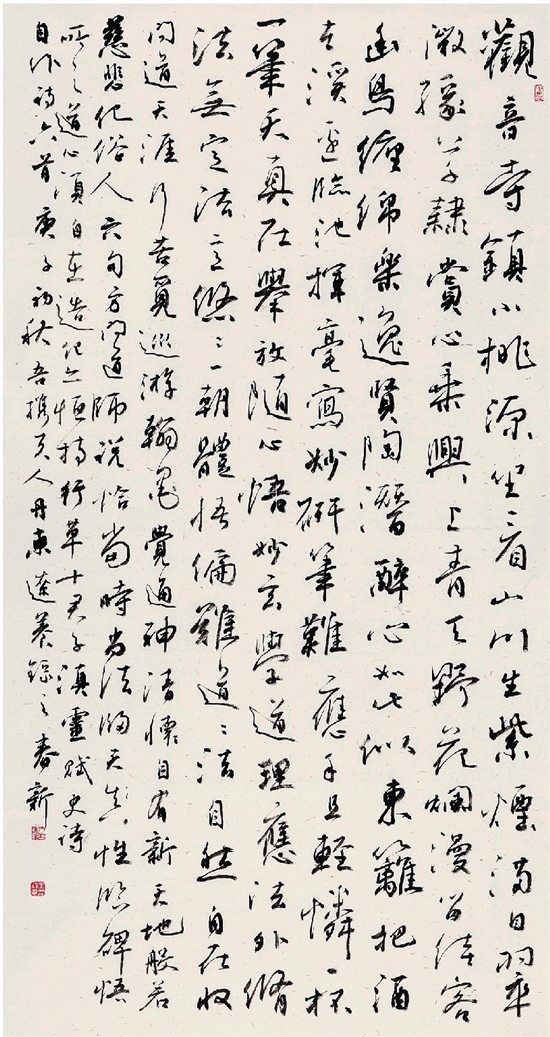 觀音寺鎮小桃源坐看山川生紫煙滿目
隸賞心乘興上青天野花爛漫留住客
幽鳥纏綿樂逸賢陶潛醉心如此似東籬把酒
去溪邊臨池揮毫寫妙研筆難應手且輕憐一杯
一筆天真在舉放隨心悟妙玄學道理應法外脩
法無定法意悠々一朝體悟偏難道々法自然自在收
問道天涯行苦覓巡游翰墨覺通神清懷自有新天地般若
慈悲化俗人六句方問道師說恰當時尚法歸天真性臨碑悟
道心須自在造化亦恆持行草十君子滇靈賦史詩
自作詩六首庚子初秋吾人丹東錄之春新